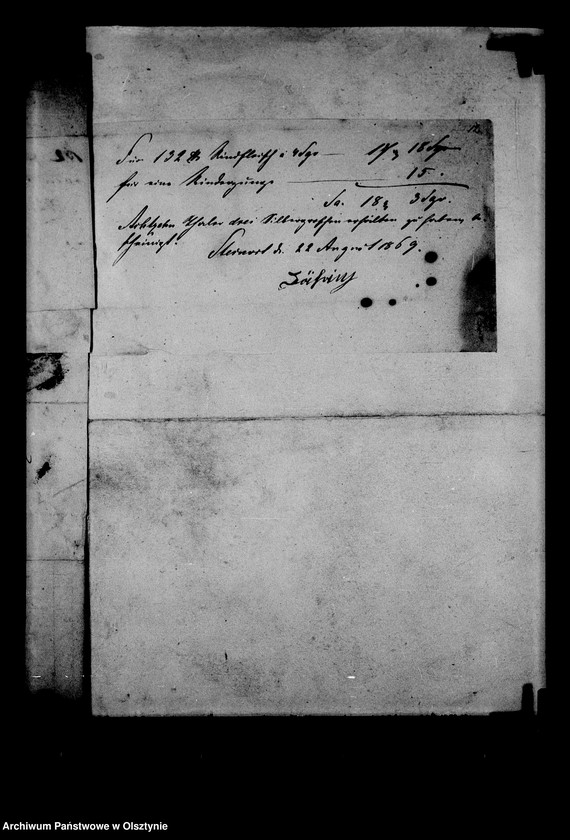 Für 132 ℔ Rindfleisch à 4 Sgr — 17 rℓ 18 Sgr
für eine Rinderzunge — 15 .
Sa. 18 rℓ 3 Sgr.
Achtzehn Thaler drei Silbergroschen erhalten zu haben, be
scheinigt.
Steinort d. 22 August 1869.
Archiwum Państwowe w Olsztynie